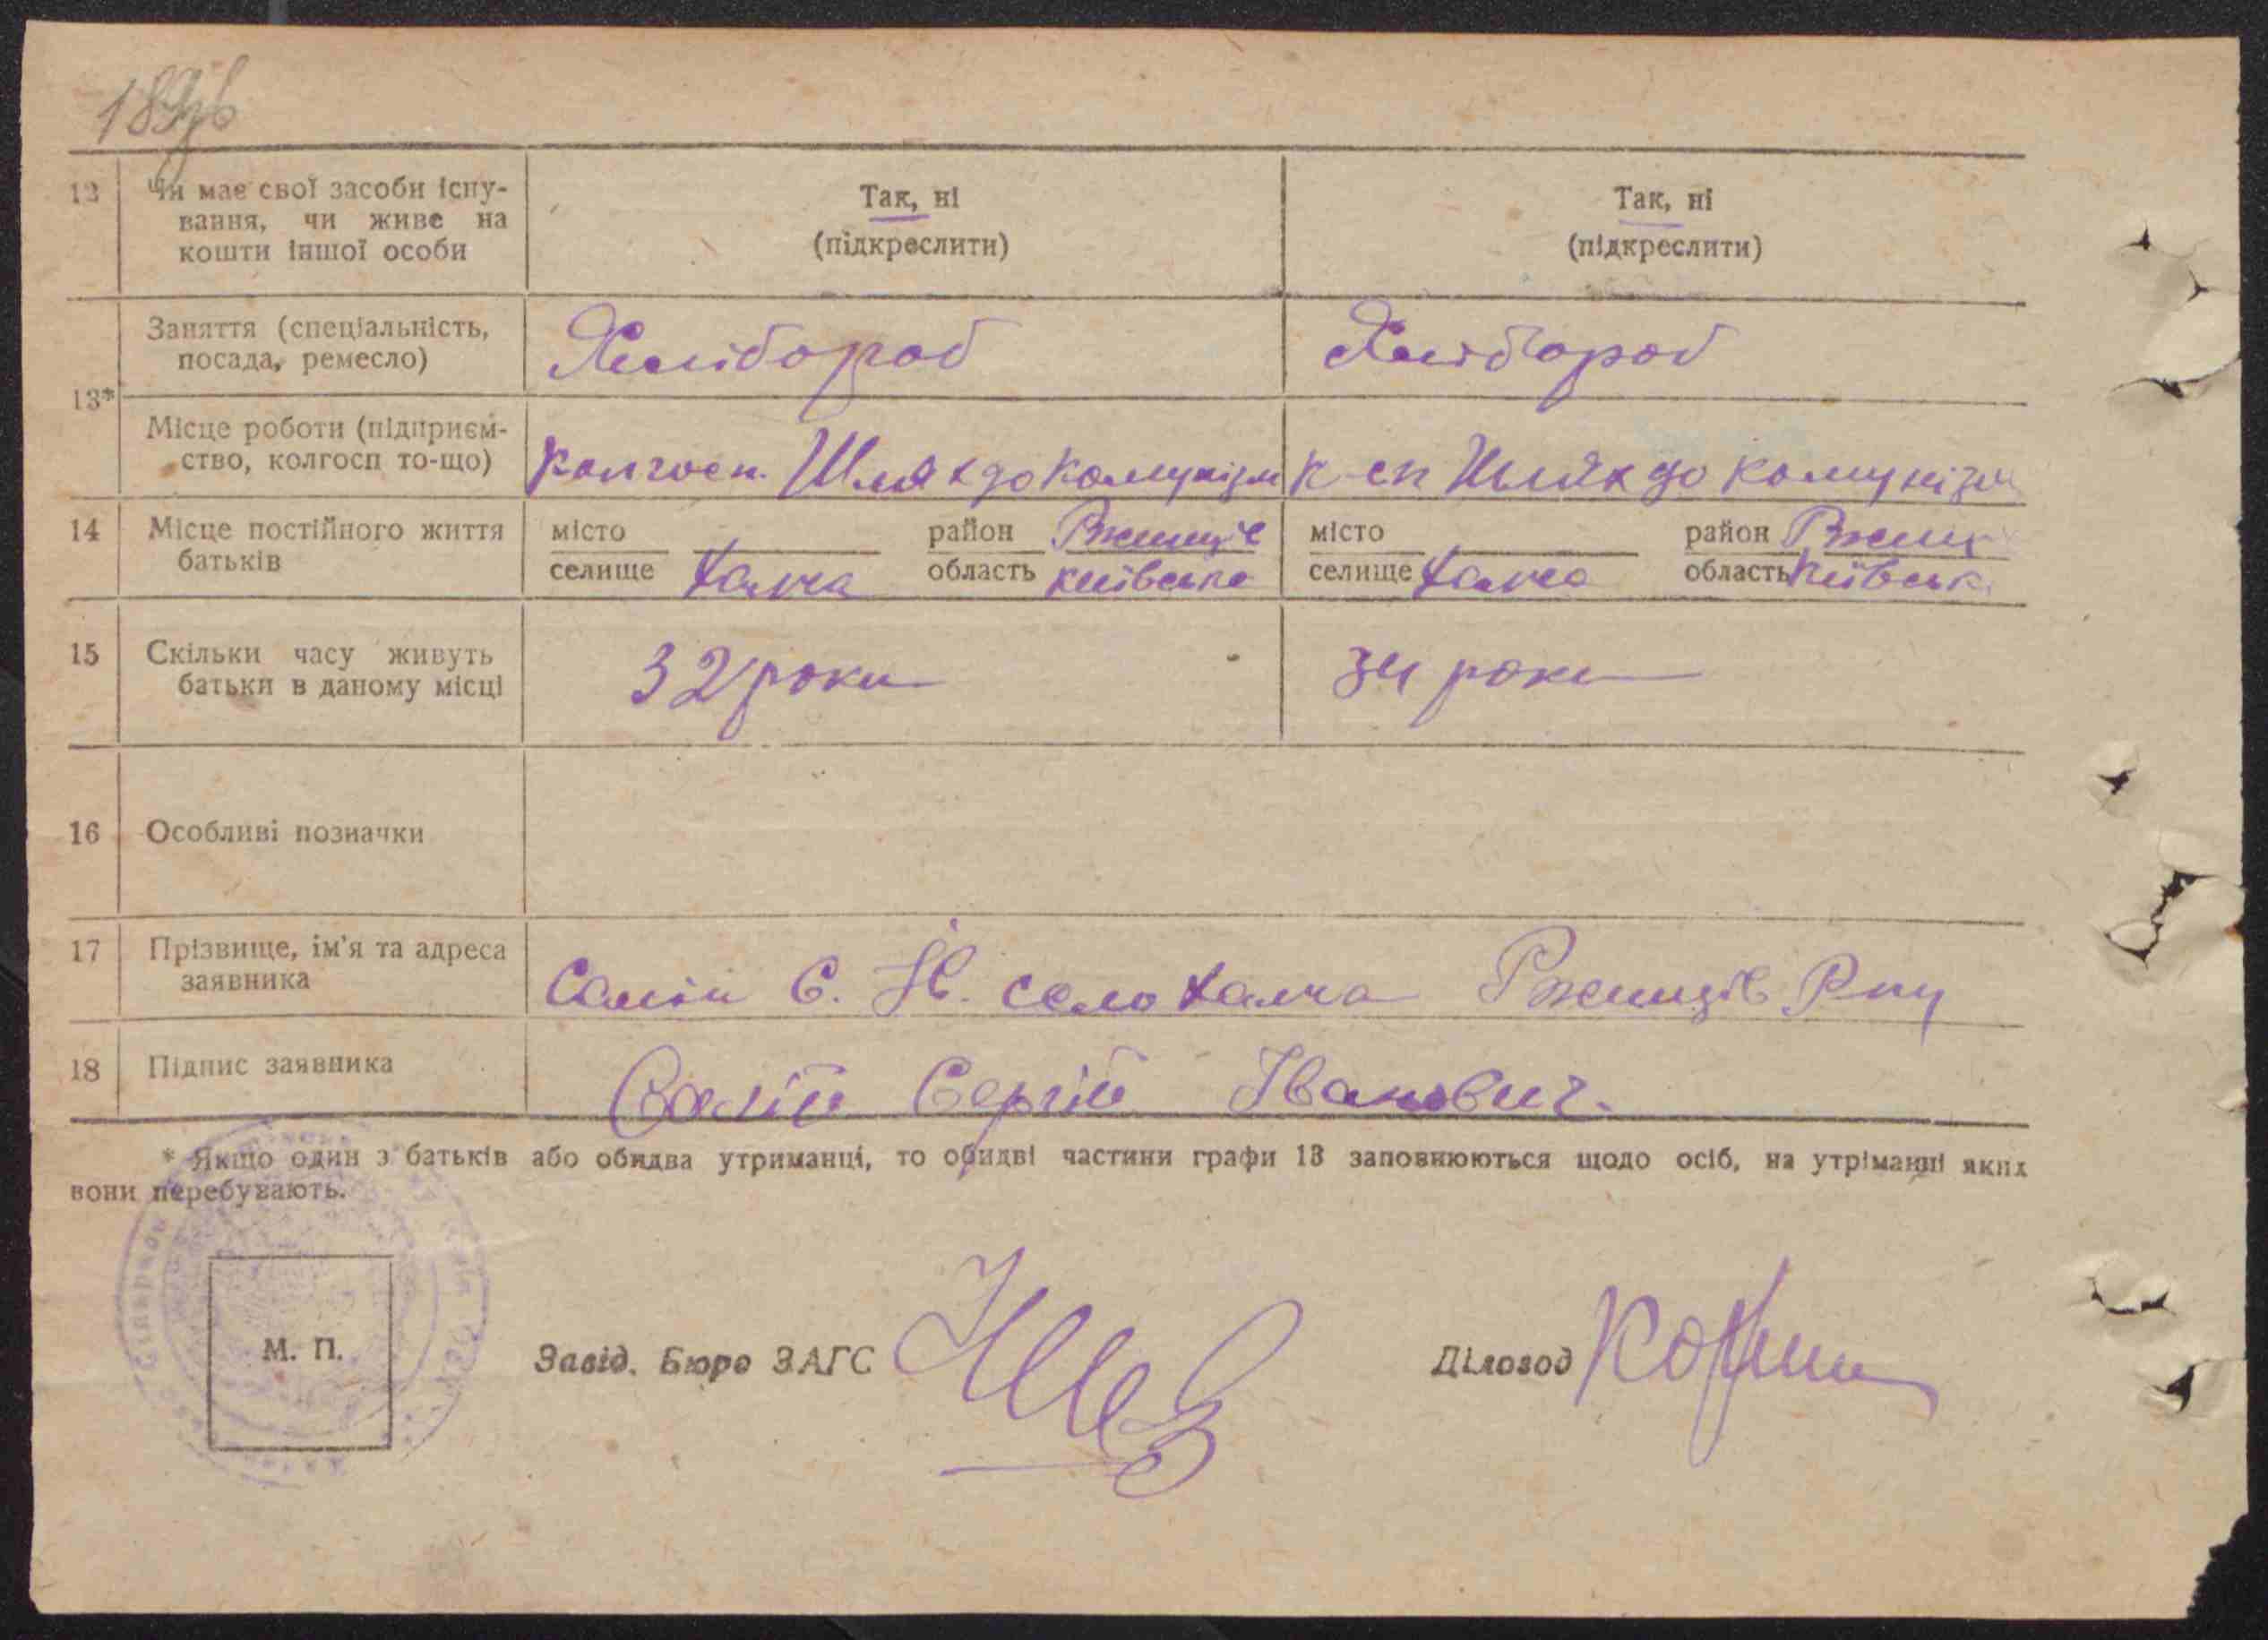 12 Чи має свої засоби існу-
вання, чи живе на
кошти іншої особи
Так, ні
(підкреслити)
Так, ні
(підкреслити)
13*
Заняття (спеціальність,
посада, ремесло)
Хлібороб
Хлібороб
Місце роботи (підприєм-
ство, колгосп то-що)
Колгосп. Шлях до Комунізм
К-сп Шлях до комунізм
14 Місце постійного життя
батьків
місто район Ржищів
селище Халча область київська
місто район Ржищ
селище Халча область Київськ.
15 Скільки часу живуть
батьки в даному місці
32 роки
34 роки
16 Особливі позначки
17 Прізвище, ім'я та адреса
заявника
Салій С. село Халча Ржищів
18 Підпис заявника
Салій Сергій Іванович.
* Якщо один з батьків або обидва утриманці, то обидві частини графи 13 заповнюються щодо осіб, на утріманні яких
вони перебувають.
М. П.
Завід. Бюро ЗАГС
Діловод